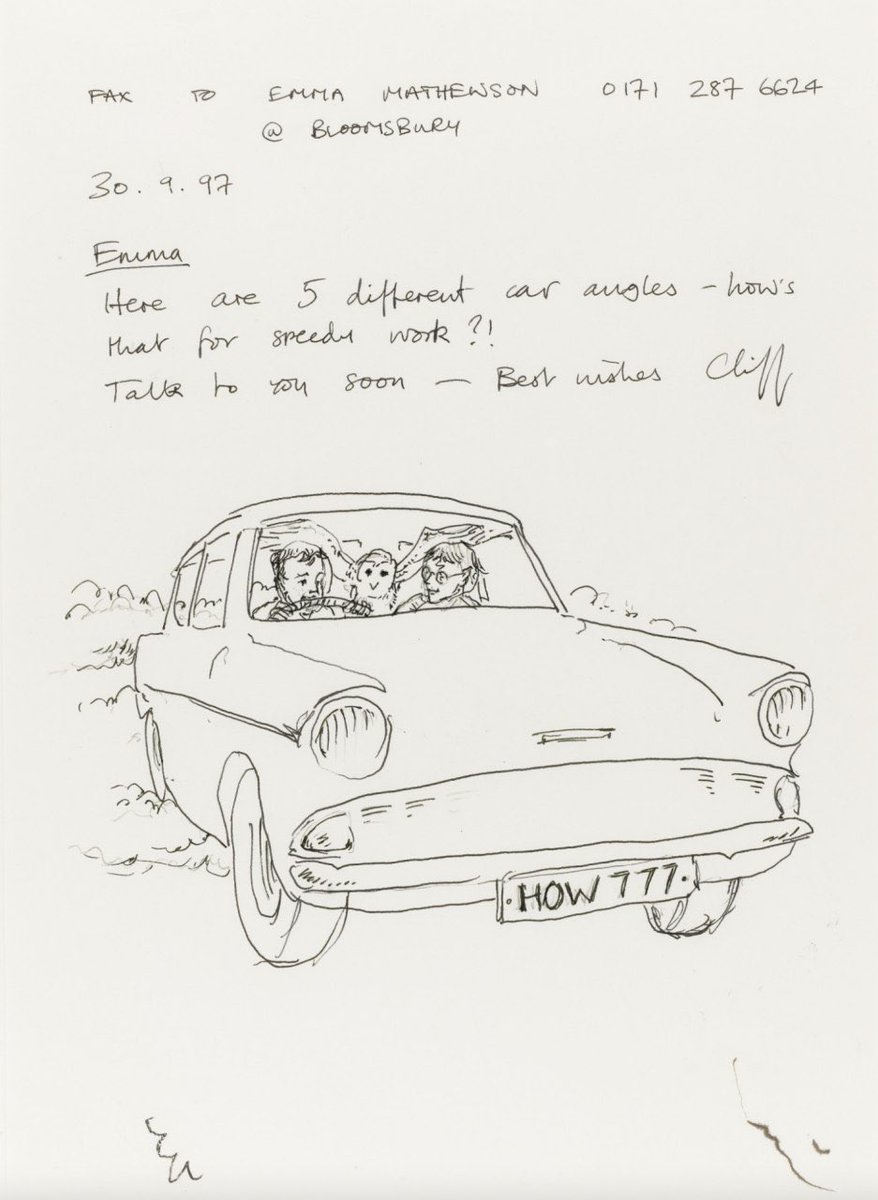 FAX TO EMMA MATHEWSON 0171 287 6624
@ BLOOMSBURY
30.9.97
Emma
Here are 5 different car angles – how's
that for speedy work?!
Talk to you soon — Best wishes Cliff
HOW 777